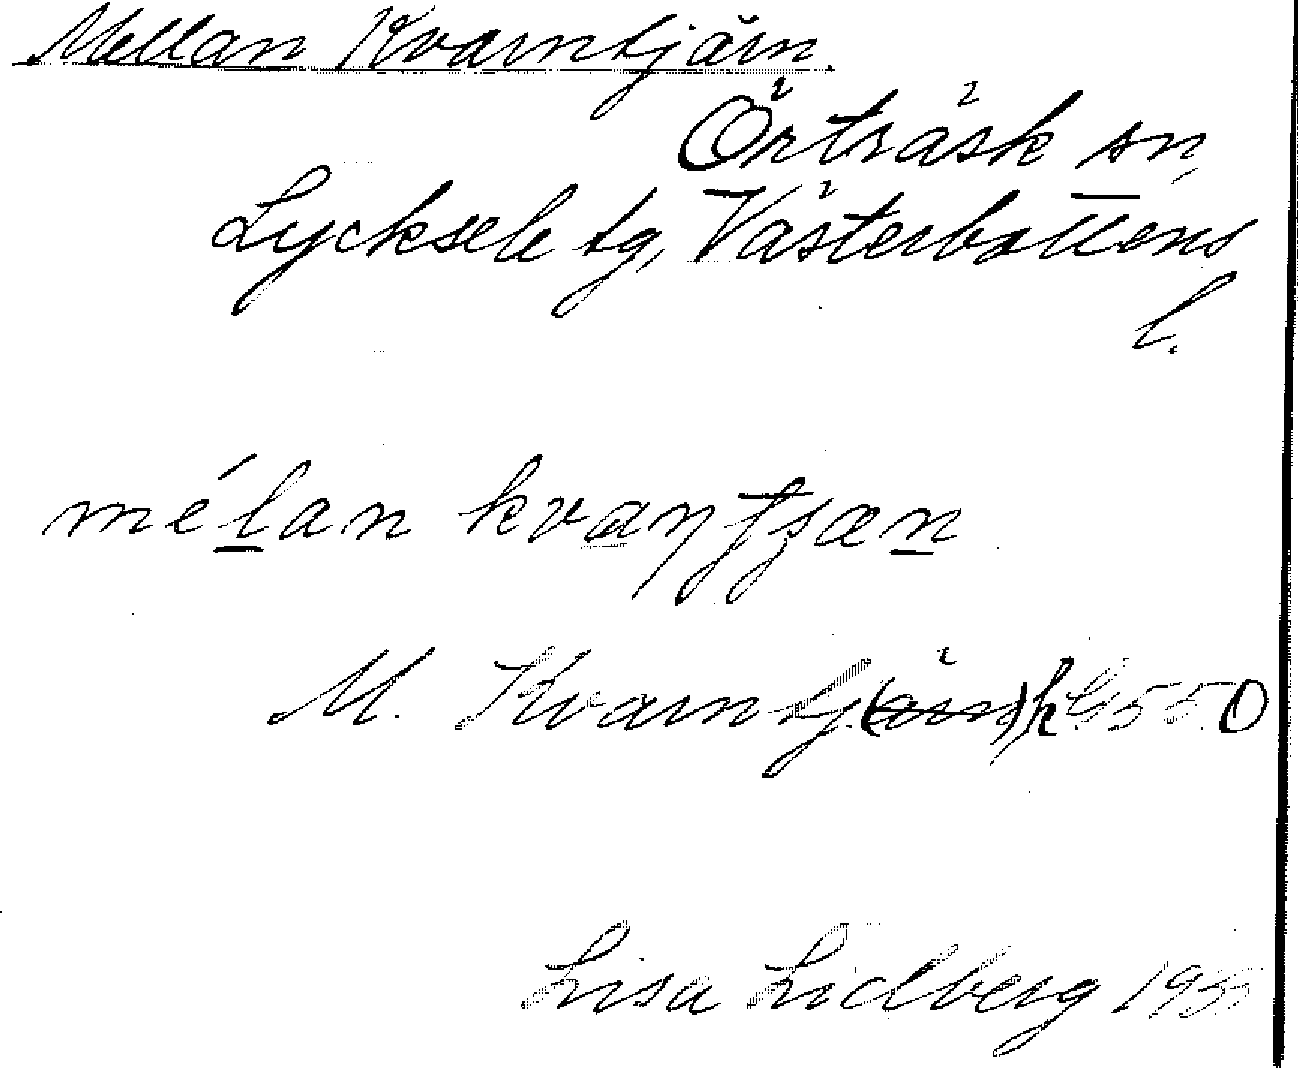 Mellan Kvarntjärn.
Örträsk sn,
Lycksele tg, Västerbottens
l.
mélan kvaɳtʂæn
M. Kvarntj(ärn)
Lisa Lidberg 1955